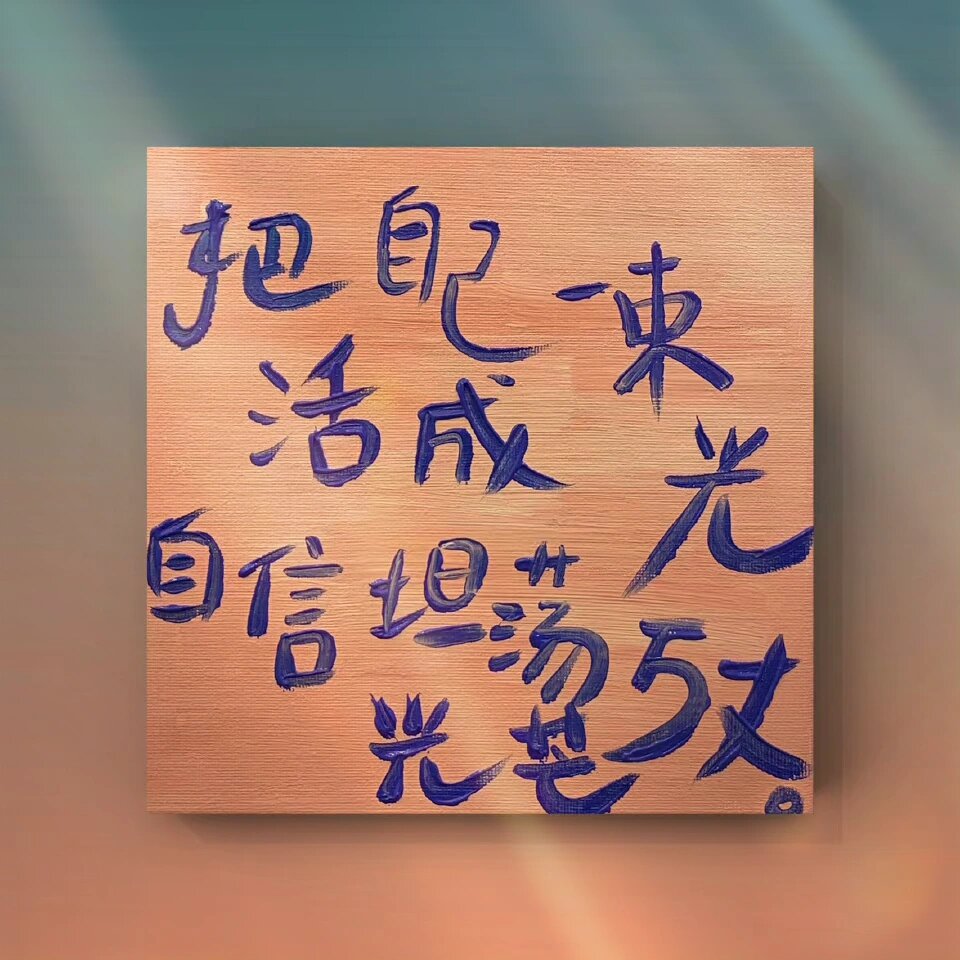 把自己
活成
一束光
自信坦荡
光芒万丈。